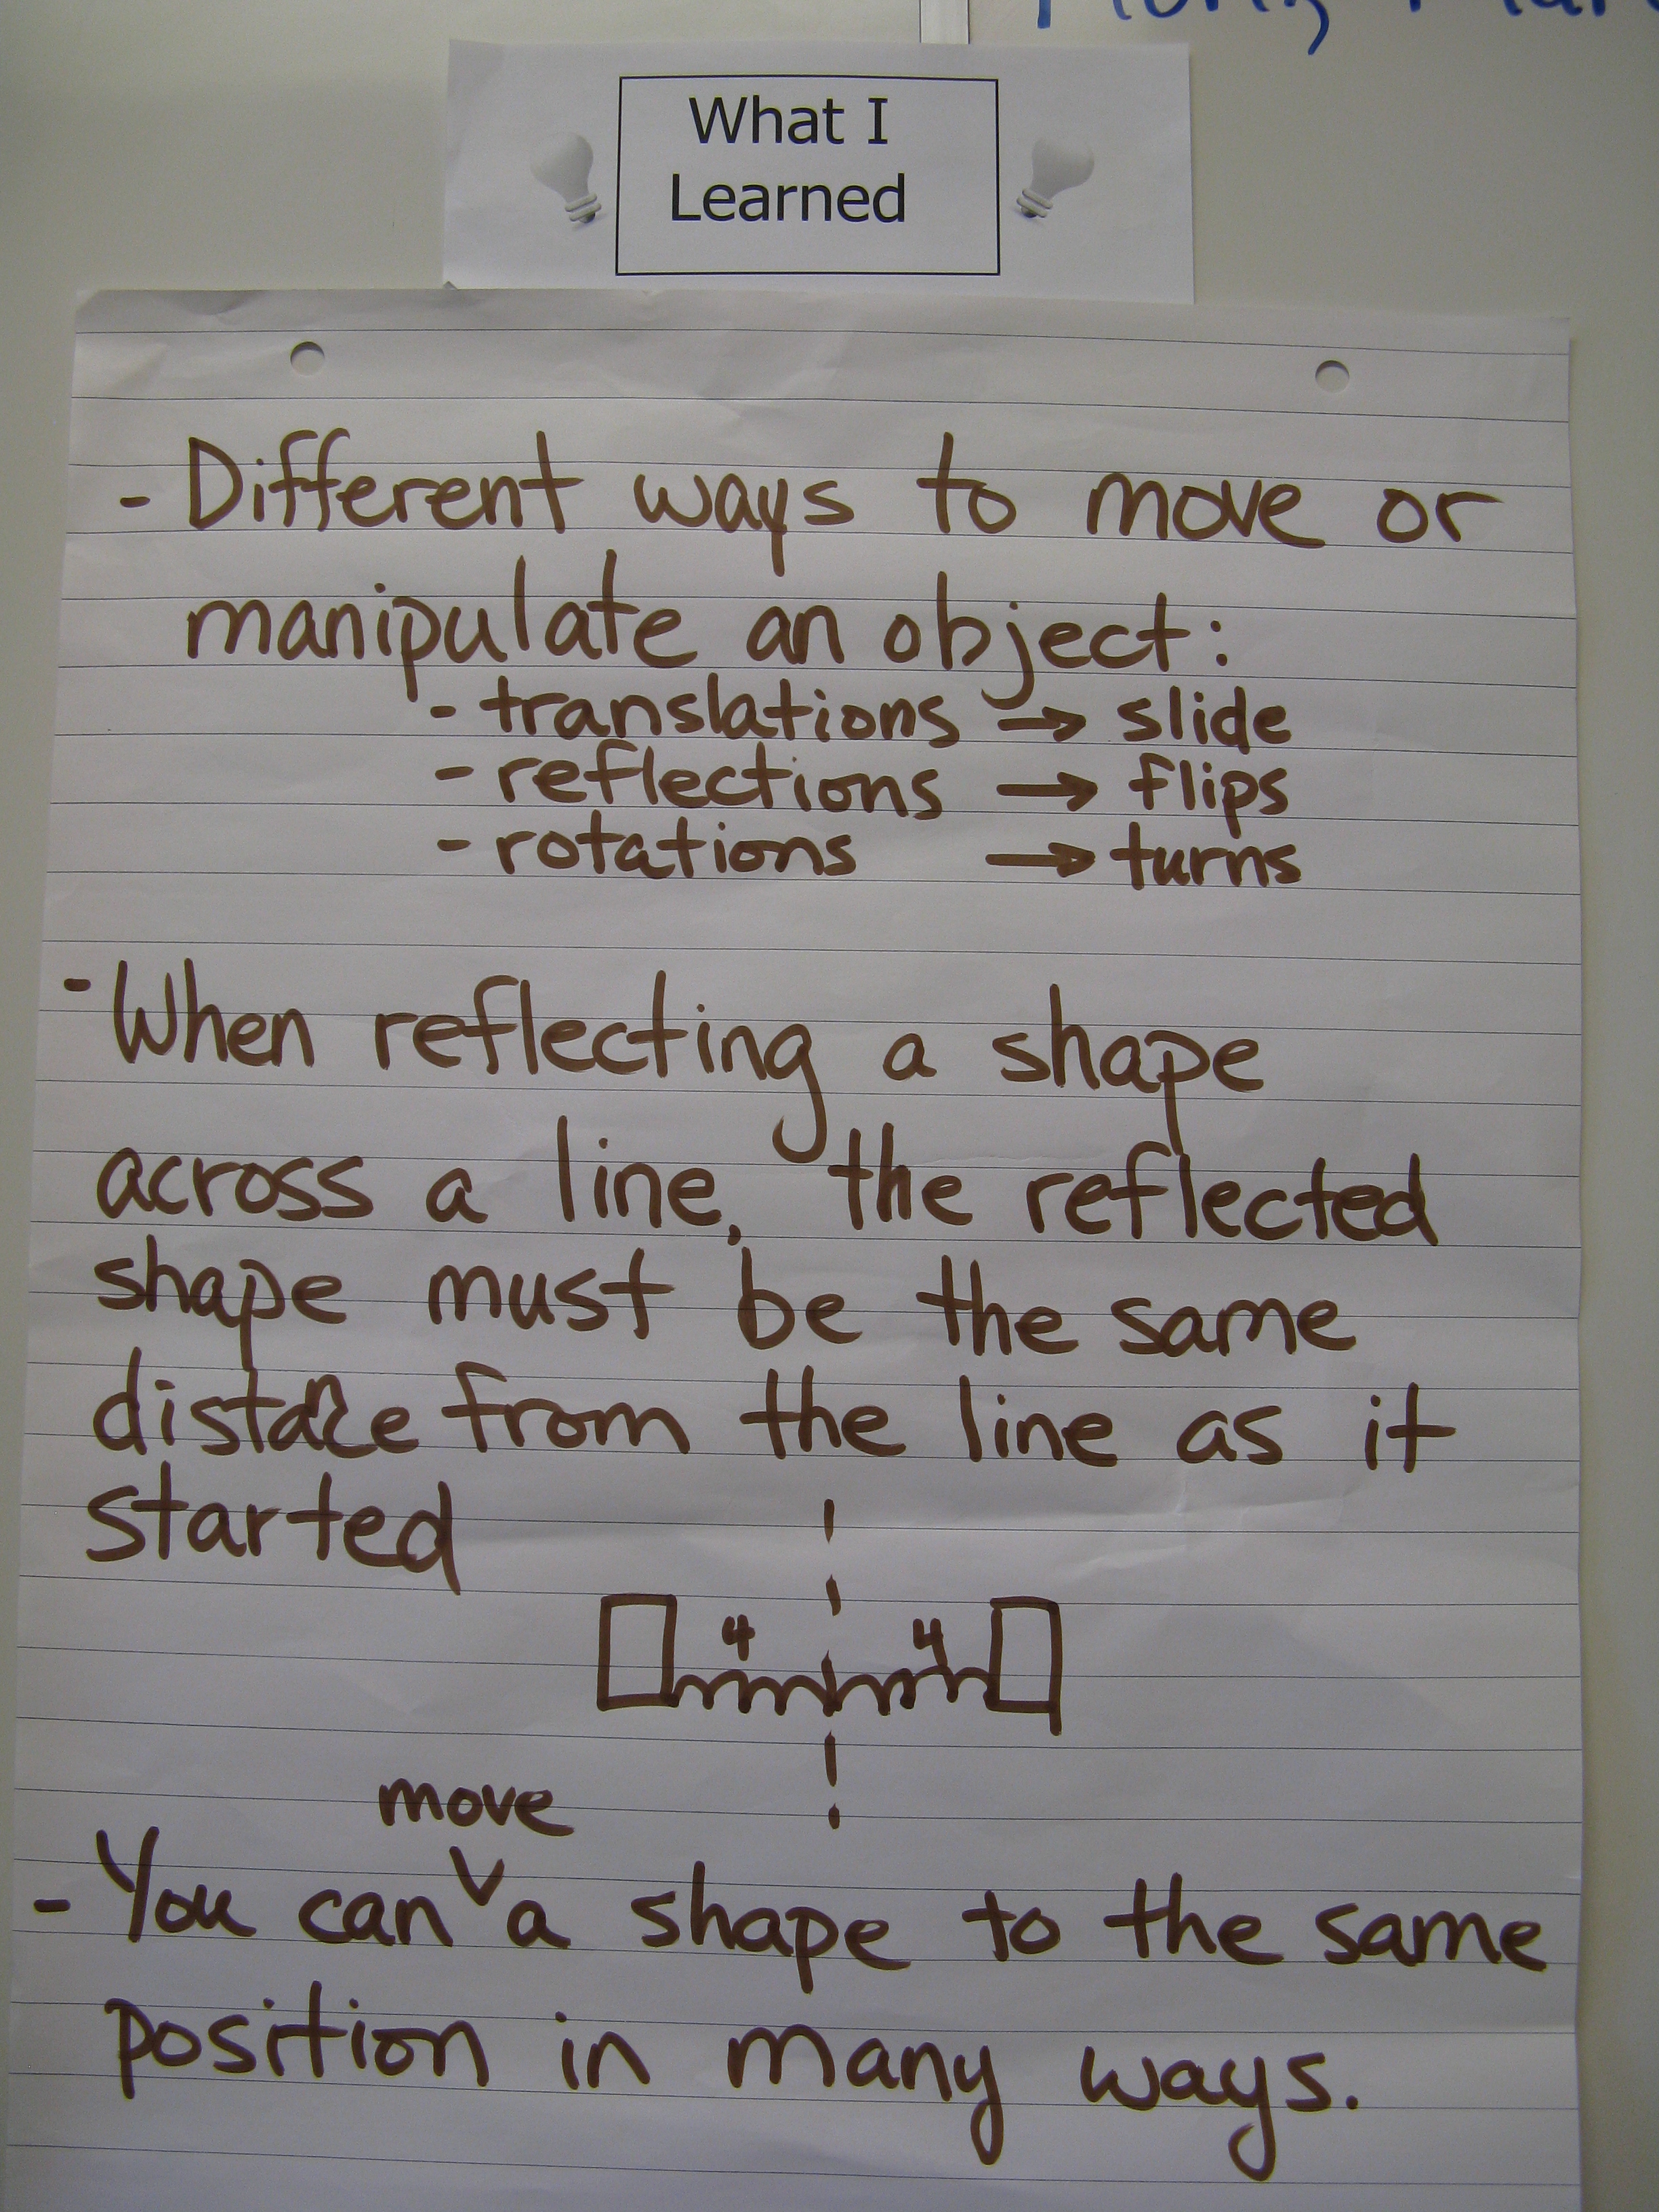 What I
Learned
- Different ways to move or
manipulate an object:
- translations → slide
- reflections → flips
- rotations → turns
- When reflecting a shape
across a line, the reflected
shape must be the same
distance from the line as it
started
4 4
move
- You can ∨ a shape to the same
position in many ways.